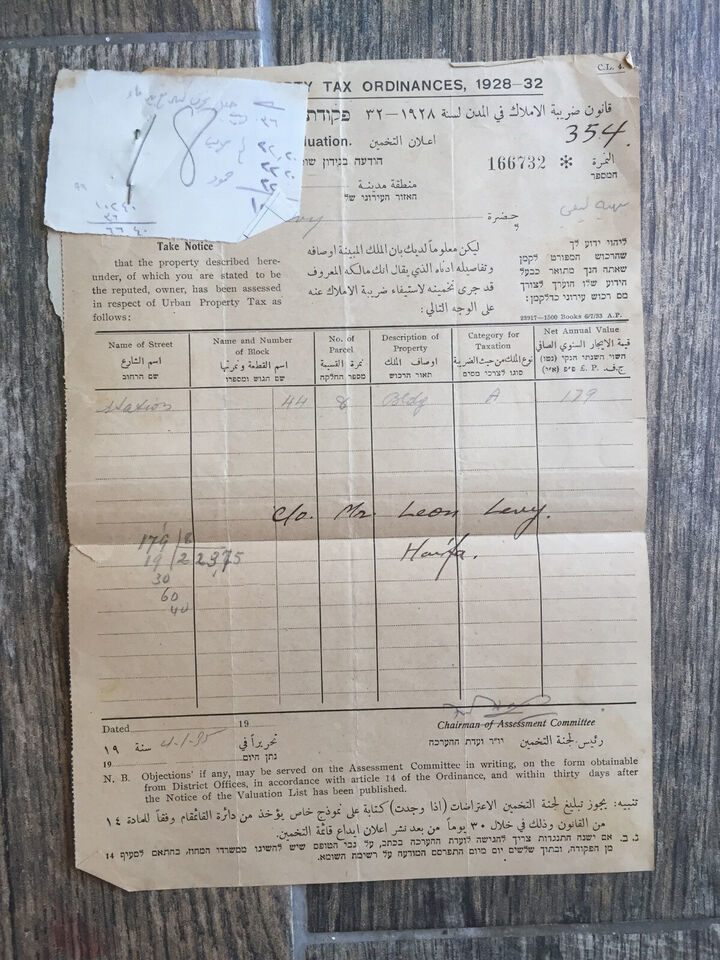 C.L. 4.
TY TAX ORDINANCES, 1928-32
قانون ضريبة الاملاك في المدن لسنة ١٩٢٨—٣٢ פקודת
354.
luation. اعلان التخمين
הודעה בנידון שו
166732 * النمرة
המספר
منطقة مدينة
האזור העירוני של
vy حضرة
Take Notice
that the property described here-
under, of which you are stated to be
the reputed, owner, has been assessed
in respect of Urban Property Tax as
follows:
ليكن معلوماً لديك بان الملك المبينة اوصافه
وتفاصيله ادناه الذي يقال انك مالكه المعروف
قد جرى تخمينه لاستيفاء ضريبة الاملاك عنه
على الوجه التالي:
ליהוי ידוע לך
שהרכוש המפורט לקמן
שאתה הנך מתואר כבעל
הידוע שלו הוערך לצורך
מס רכוש עירוני כדלקמן:
23917—1500 Books 6/7/33 A.P.
Name of Street
اسم الشارع
שם הרחוב
Name and Number
of Block
اسم القطعة ونمرتها
שם הגוש ומספרו
No. of
Parcel
نمرة القسيمة
מספר החלקה
Description of
Property
اوصاف الملك
תאור הרכוש
Category for
Taxation
نوع الملك من حيث الضريبة
סוגו לצרכי מסים
Net Annual Value
قيمة الايجار السنوي الصافي
השווי השנתי הנקי (נטו)
ج.ف. £.P. פ״פ (א״י)
Station 44 8 Bldg A 179
c/o. Mr. Leon Levy.
Haifa.
179
19
30
60
Dated 19
Chairman of Assessment Committee
تحريراً في 4-1-35 سنة ١٩
رئيس لجنة التخمين יו״ר ועדת ההערכה
19 נתן היום
N. B. Objections' if any, may be served on the Assessment Committee in writing, on the form obtainable
from District Offices, in accordance with article 14 of the Ordinance, and within thirty days after
the Notice of the Valuation List has been published.
تنبيه: يجوز تبليغ لجنة التخمين الاعتراضات (اذا وجدت) كتابة على نموذج خاص يؤخذ من دائرة القائمقام وفقاً للمادة ١٤
من القانون وذلك في خلال ٣٠ يوماً من بعد نشر اعلان ايداع قائمة التخمين.
נ. ב. אם ישנה התנגדות צריך להגישה לועדת ההערכה בכתב, על גבי הטופס שיש להשיגו ממשרדי המחוז, בהתאם לסעיף 14
מן הפקודה, ובתוך שלשים יום מיום התפרסם המודעה על רשימת השומא.